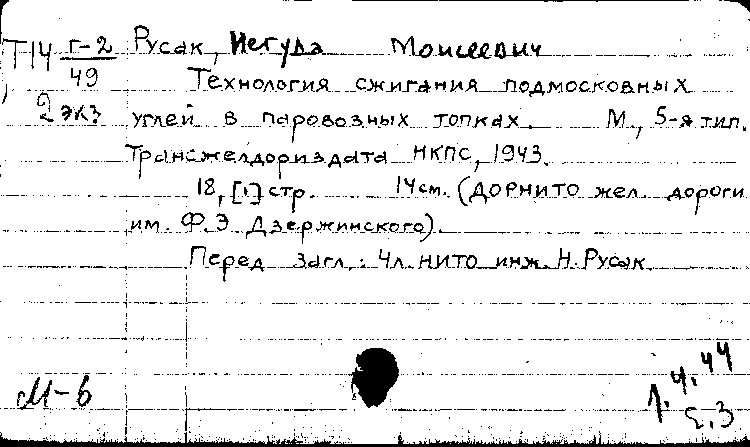 Т14 Г-2/49 Русак, Иегуда Моисеевич
Технология сжигания подмосковных
2 экз углей в паровозных топках. М., 5-я тип.
Трансжелдориздата НКПС, 1943.
18, [1] стр. 14 см. (ДОРНИТО жел. дороги
им. Ф.Э. Дзержинского).
Перед загл.: Чл. НИТО инж. Н. Русак
М-в
1.4.44